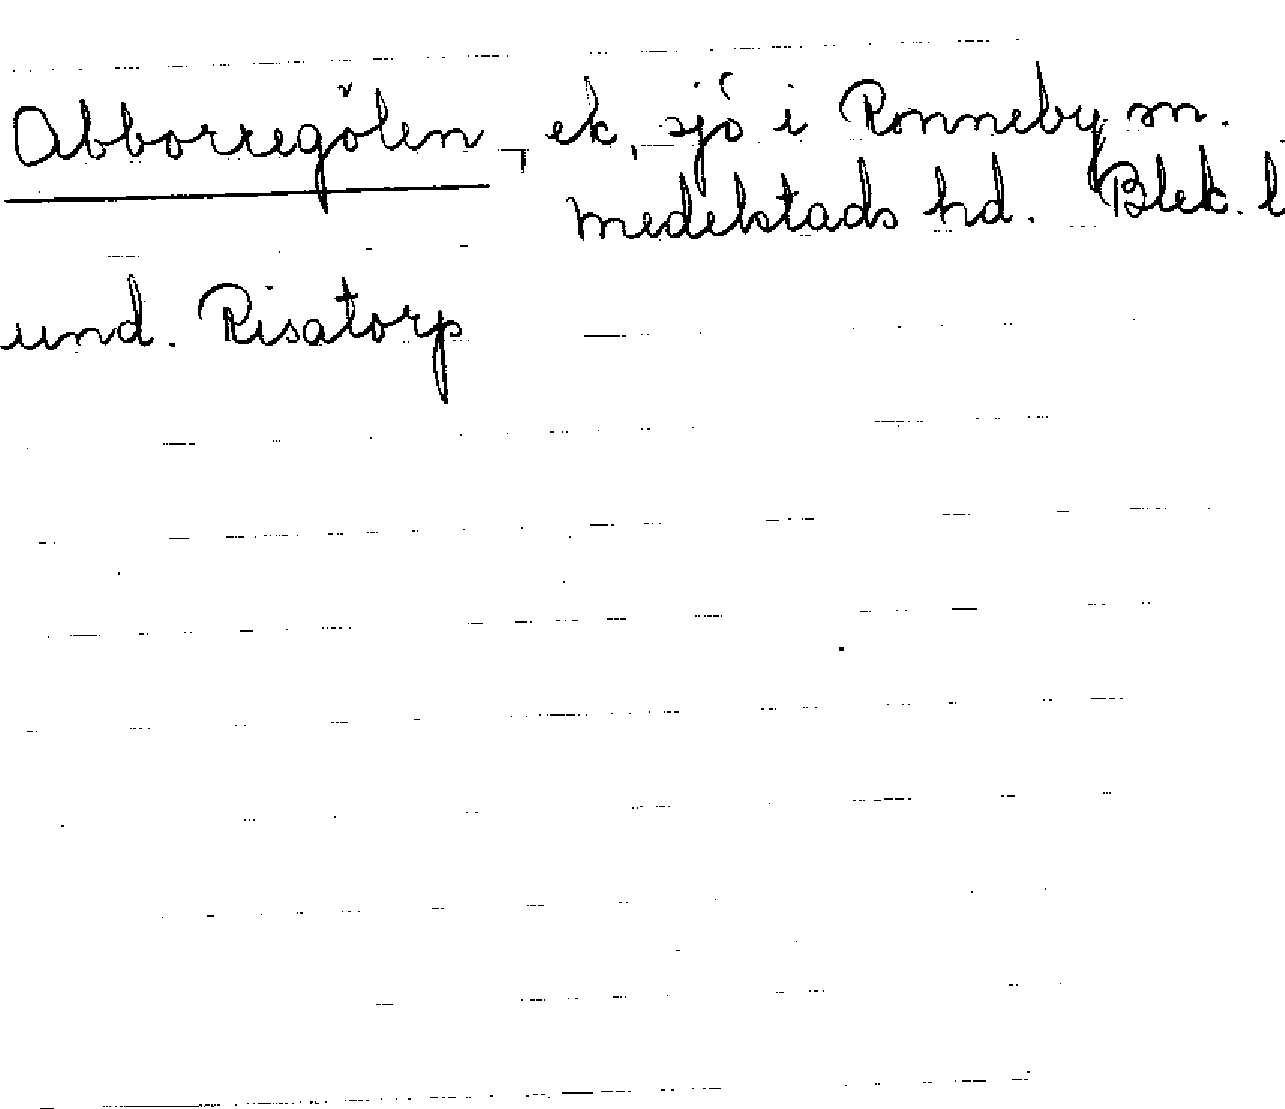 Abborregölen, ek, sjö i Ronneby sn.
Medelstads hd. Blek. l
und. Risatorp